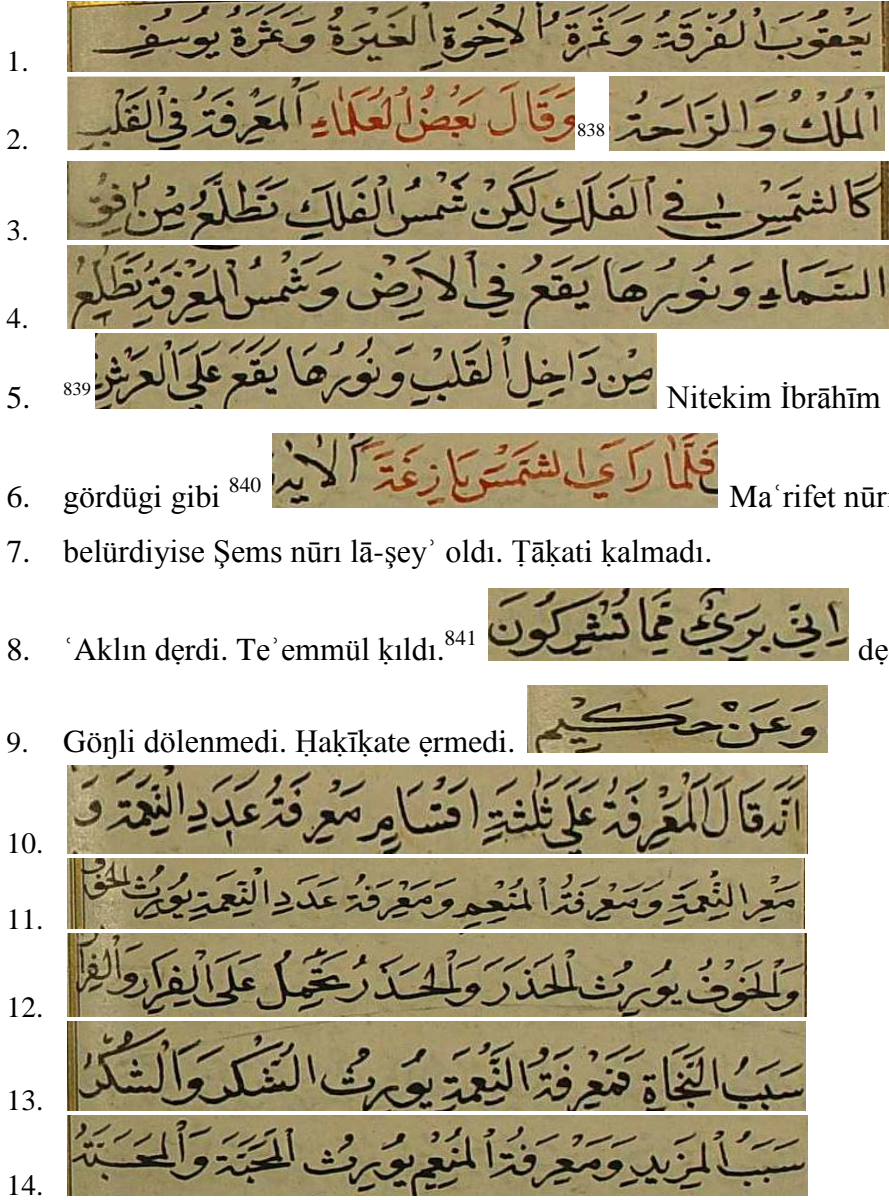 1. يَعْقُوبَ الْفُرْقَةُ وَثَمَرَةُ الْاِخْوَةِ الْغَيْرَةُ وَثَمَرَةُ يُوسُفَ
2. الْمُلْكُ وَالرَّاحَةُ 838 وَقَالَ بَعْضُ الْعُلَمَاءِ اَلْمَعْرِفَةُ فِي الْقَلْبِ
3. كَالشَّمْسِ فِي الْفَلَكِ لَكِنْ شَمْسُ الْفَلَكِ تَطْلَعُ مِنْ اُفِقِ
4. السَّمَاءِ وَنُورُهَا يَقَعُ فِي الْاَرْضِ وَشَمْسُ الْمَعْرِفَةِ تَطْلِعُ
5. مِنْ دَاخِلِ الْقَلْبِ وَنُورُهَا يَقَعَ عَلَى الْعَرْشِ 839 Nitekim İbrāhīm
6. gördügi gibi 840 فَلَمَّا رَاَىَ الشَّمْسَ بَازِغَةً اَلْاٰيَة Maʿrifet nūrı
7. belürdiyise Şems nūrı lā-şeyʾ oldı. Ṭāḳati ḳalmadı.
8. ʿAklın dẹrdi. Teʾemmül ḳıldı. 841 اِنِّي بَرِيءٌ مِمَّا تُشْرِكُونَ dẹ
9. Göŋli dölenmedi. Ḥaḳīḳate ẹrmedi. وَعَنْ حَكِيمٍ
10. اَنَّهُ قَالَ الْمَعْرِفَةُ عَلَى ثَلٰثَةِ اَقْسَامٍ مَعْرِفَةُ عَدَدِ النِّعْمَةِ وَ
11. مَعْرِ النِّعْمَةِ وَمَعْرِفَةُ الْمُنْعِمِ وَمَعْرِفَةُ عَدَدِ النِّعْمَةِ يُورِثُ الْخَوْفَ
12. وَالْخَوْفُ يُورِثُ الْحَذَرَ وَالْحَذَرُ يَحْمِلُ عَلَى الْفِرَارِ وَالْفِرَا
13. سَبَبُ النَّجَاةِ فَمَعْرِفَةُ النِّعْمَةِ يُورِثُ الشُّكْرَ وَالشُّكْرُ
14. سَبَبُ الْمَزِيدِ وَمَعْرِفَةُ الْمُنْعِمِ يُورِثُ الْمَحَبَّةَ وَالْمَحَبَّةُ